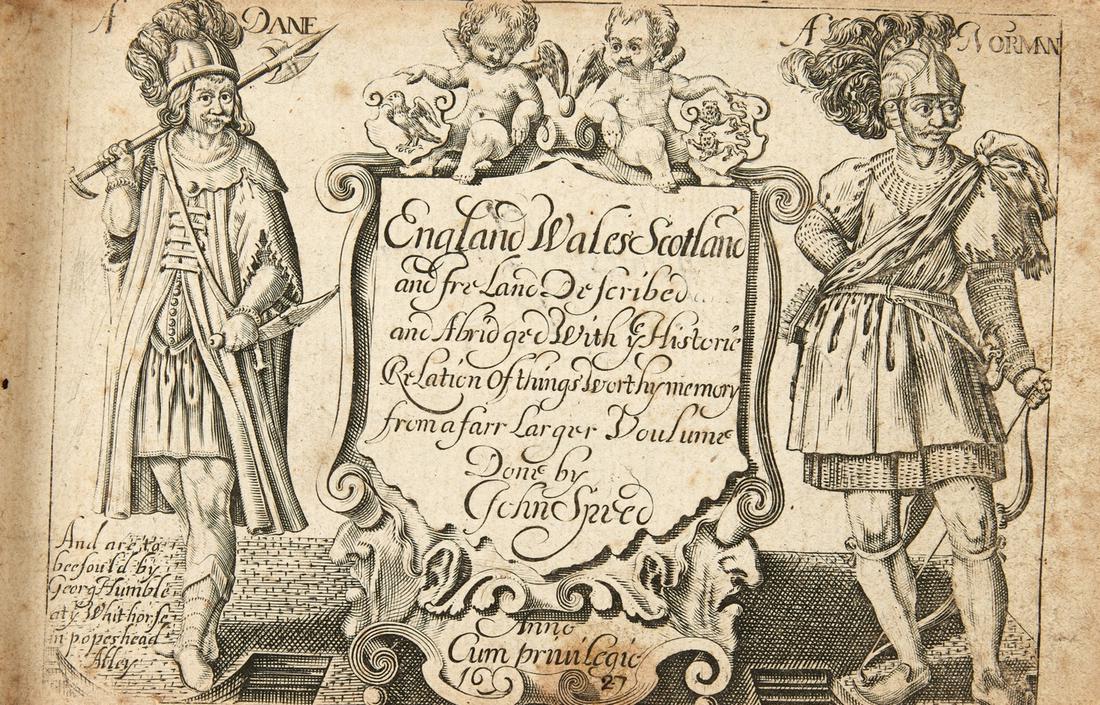 A DANE
A NORMAN
England Wales Scotland
and Ireland Described
and Abridged With ye Historic
Relation Of things worthy memory
from a farr Larger Voulume
Done by
John Speed
And are to
bee sould by
Georg Humble
at ye Whithorse
in popeshead
Alley
Anno
Cum priuilegio
16 27